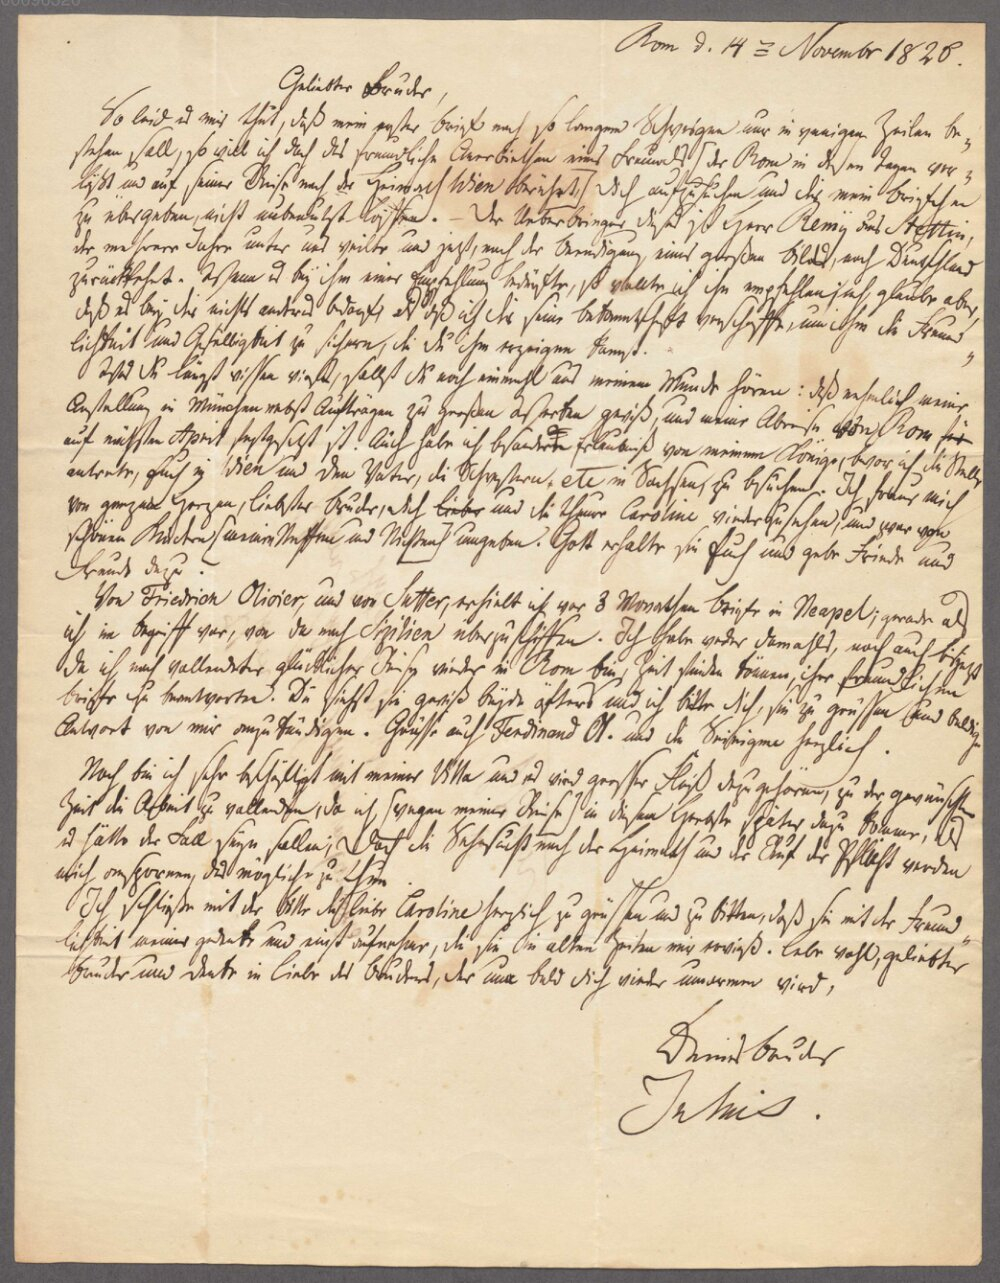 Rom d. 14 = November 1826.
Geliebter Bruder,
So leid es mir thut, daß mein erster Brief nach so langem Schweigen nur in wenigen Zeilen be-
stehen soll, so will ich doch das freundliche Anerbiethen eines Freundes [der Rom in diesen Tagen ver-
läßt und auf seiner Reise nach der Heimath Wien berührt,] dich aufzusuchen und dir mein Briefchen
zu übergeben, nicht unbenutzt lassen. – Der Ueberbringer dieses ist Herr Remÿ aus Stettin,
der mehrere Jahre unter uns weilte und jetzt, nach der Beendigung eines großen Bildes, nach Deutschland
zurückkehrt. Wenn es bey ihm einer Empfehlung bedürfte, so wollte ich ihn empfehlen, ich glaube aber,
daß es bey dir nichts anders bedarf, als daß ich dir seine Bekanntschaft verschaffe, um ihm die Freund-
lichkeit und Gefälligkeit zu sichern, die du ihm erzeigen kannst.
Was du längst wissen wirst, sollst du noch einmahl aus meinem Munde hören: daß nehmlich meine
Anstellung in München nebst Aufträgen zu großen Arbeiten gewiß, und meine Abreise von Rom für
auf nächsten April festgesetzt ist. Auch habe ich besondere Erlaubniß von meinem Könige, bevor ich die Stelle
antrete, Euch in Wien und den Vater, die Schwestern etc in Sachsen, zu besuchen. Ich freue mich
von ganzem Herzen, liebster Bruder, dich lieber und die theure Caroline wiederzusehen, und zwar von
schönen Kindern [meinen Neffen und Nichten] umgeben. Gott erhalte sie Euch und gebe Friede und
Freude dazu.
Von Friedrich Olivier, und von Sutter, erhielt ich vor 3 Monathen Briefe in Neapel; gerade als
ich im Begriff war, von da nach Sizilien überzuschiffen. Ich habe weder damahls, noch auch bis jetzt
da ich nach vollendeter glücklicher Reise wieder in Rom bin, Zeit finden können, ihre freundlichen
Briefe zu beantworten. Du siehst sie gewiß beyde öfters und ich bitte dich, sie zu grüßen und baldige
Antwort von mir anzukündigen. Grüsse auch Ferdinand Ol. und die Seinigen herzlich.
Noch bin ich sehr beschäftigt mit meiner Villa und es wird grosser Fleiß dazu gehören, zu der gewünschten
Zeit die Arbeit zu vollenden, da ich [wegen meiner Reise] in diesem Herbste später dazu komme, als
es hätte der Fall seyn sollen; doch die Sehnsucht nach der Heimath und der Ruf der Pflicht werden
mich anspornen, das mögliche zu thun.
Ich schließe mit der Bitte die liebe Caroline herzlich zu grüssen und zu bitten, daß sie mit der Freund-
lichkeit meiner gedenke und mich aufnehme, die sie in alten Zeiten mir erwieß. Lebe wohl, geliebter
Bruder und denke in Liebe des Bruders, der nun bald dich wieder umarmen wird,
Deines Bruders
Julius.